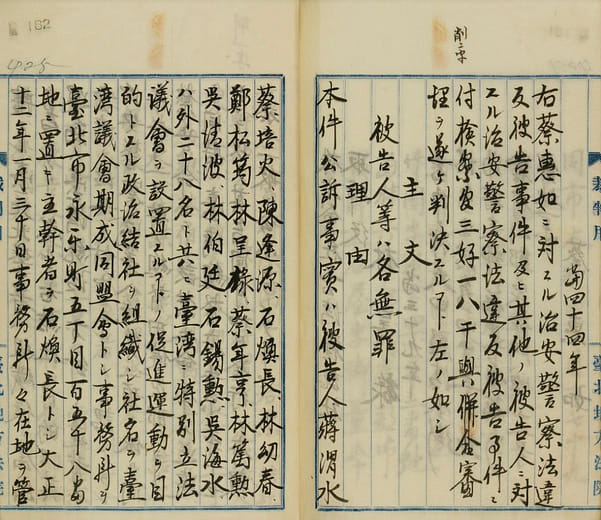 削二字
当四十四年
右蔡惠如ニ対スル治安警察法違
反被告事件及其ノ他ノ被告人ニ対
スル治安警察法違反被告事件ニ
付検察官三好一八干與併合審
理ヲ遂ケ判決スルコト左ノ如シ
主文
被告人等ハ各無罪
理由
本件公訴事実ハ被告人蔣渭水
162
425
蔡培火、陳逢源、石煥長、林幼春、
鄭松筠、林呈祿、蔡年亨、林篤勲
吳清波、林伯廷、石錫勲、吳海水
ハ外二十八名ト共ニ臺湾ニ特別立法
議會ヲ設置スルコトノ促進運動ヲ目
的トスル政治結社ヲ組織シ社名ヲ臺
湾議會期成同盟會トシ事務所ヲ
臺北市永乐町五丁目百五十八番
地ニ置キ主幹者ヲ石煥長トシ大正
十二年一月三十日事務所々在地ヲ管
裁判用
臺北地方法院